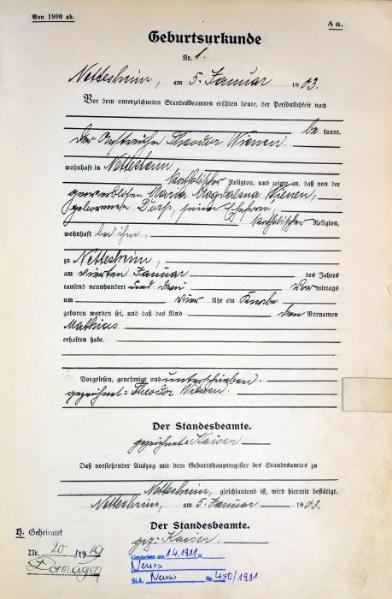 Von 1900 ab.
A a.
Geburtsurkunde
Nr. 1.
Nettesheim, am 5. Januar 1903.
Vor dem unterzeichneten Standesbeamten erschien heute, der Persönlichkeit nach
be kannt,
der Theodor Wienen
wohnhaft in Nettesheim
katholischer Religion, und zeigte an, daß von der
Maria Magdalena Wienen,
geborenen seiner Ehefrau,
katholischer Religion,
wohnhaft bei ihm,
zu Nettesheim,
am vierten Januar des Jahres
tausend neunhundert und drei Vor mittags
um vier Uhr ein Knabe
geboren worden sei, und daß das Kind den Vornamen
Mathias
erhalten habe.
Vorgelesen, genehmigt und unterschrieben.
gezeichnet: Theodor Wienen.
Der Standesbeamte.
gezeichnet: Kaiser
Daß vorstehender Auszug mit dem Geburtshauptregister des Standesamtes zu
Nettesheim, gleichlautend ist, wird hiermit bestätigt.
Nettesheim, am 5. Januar 1903.
Der Standesbeamte.
gez: Kaiser.
H. Geheiratet
Nr. 20/19
Dormagen
1.4.1981
Neuss
StA. Neuss Nr. 450/1981